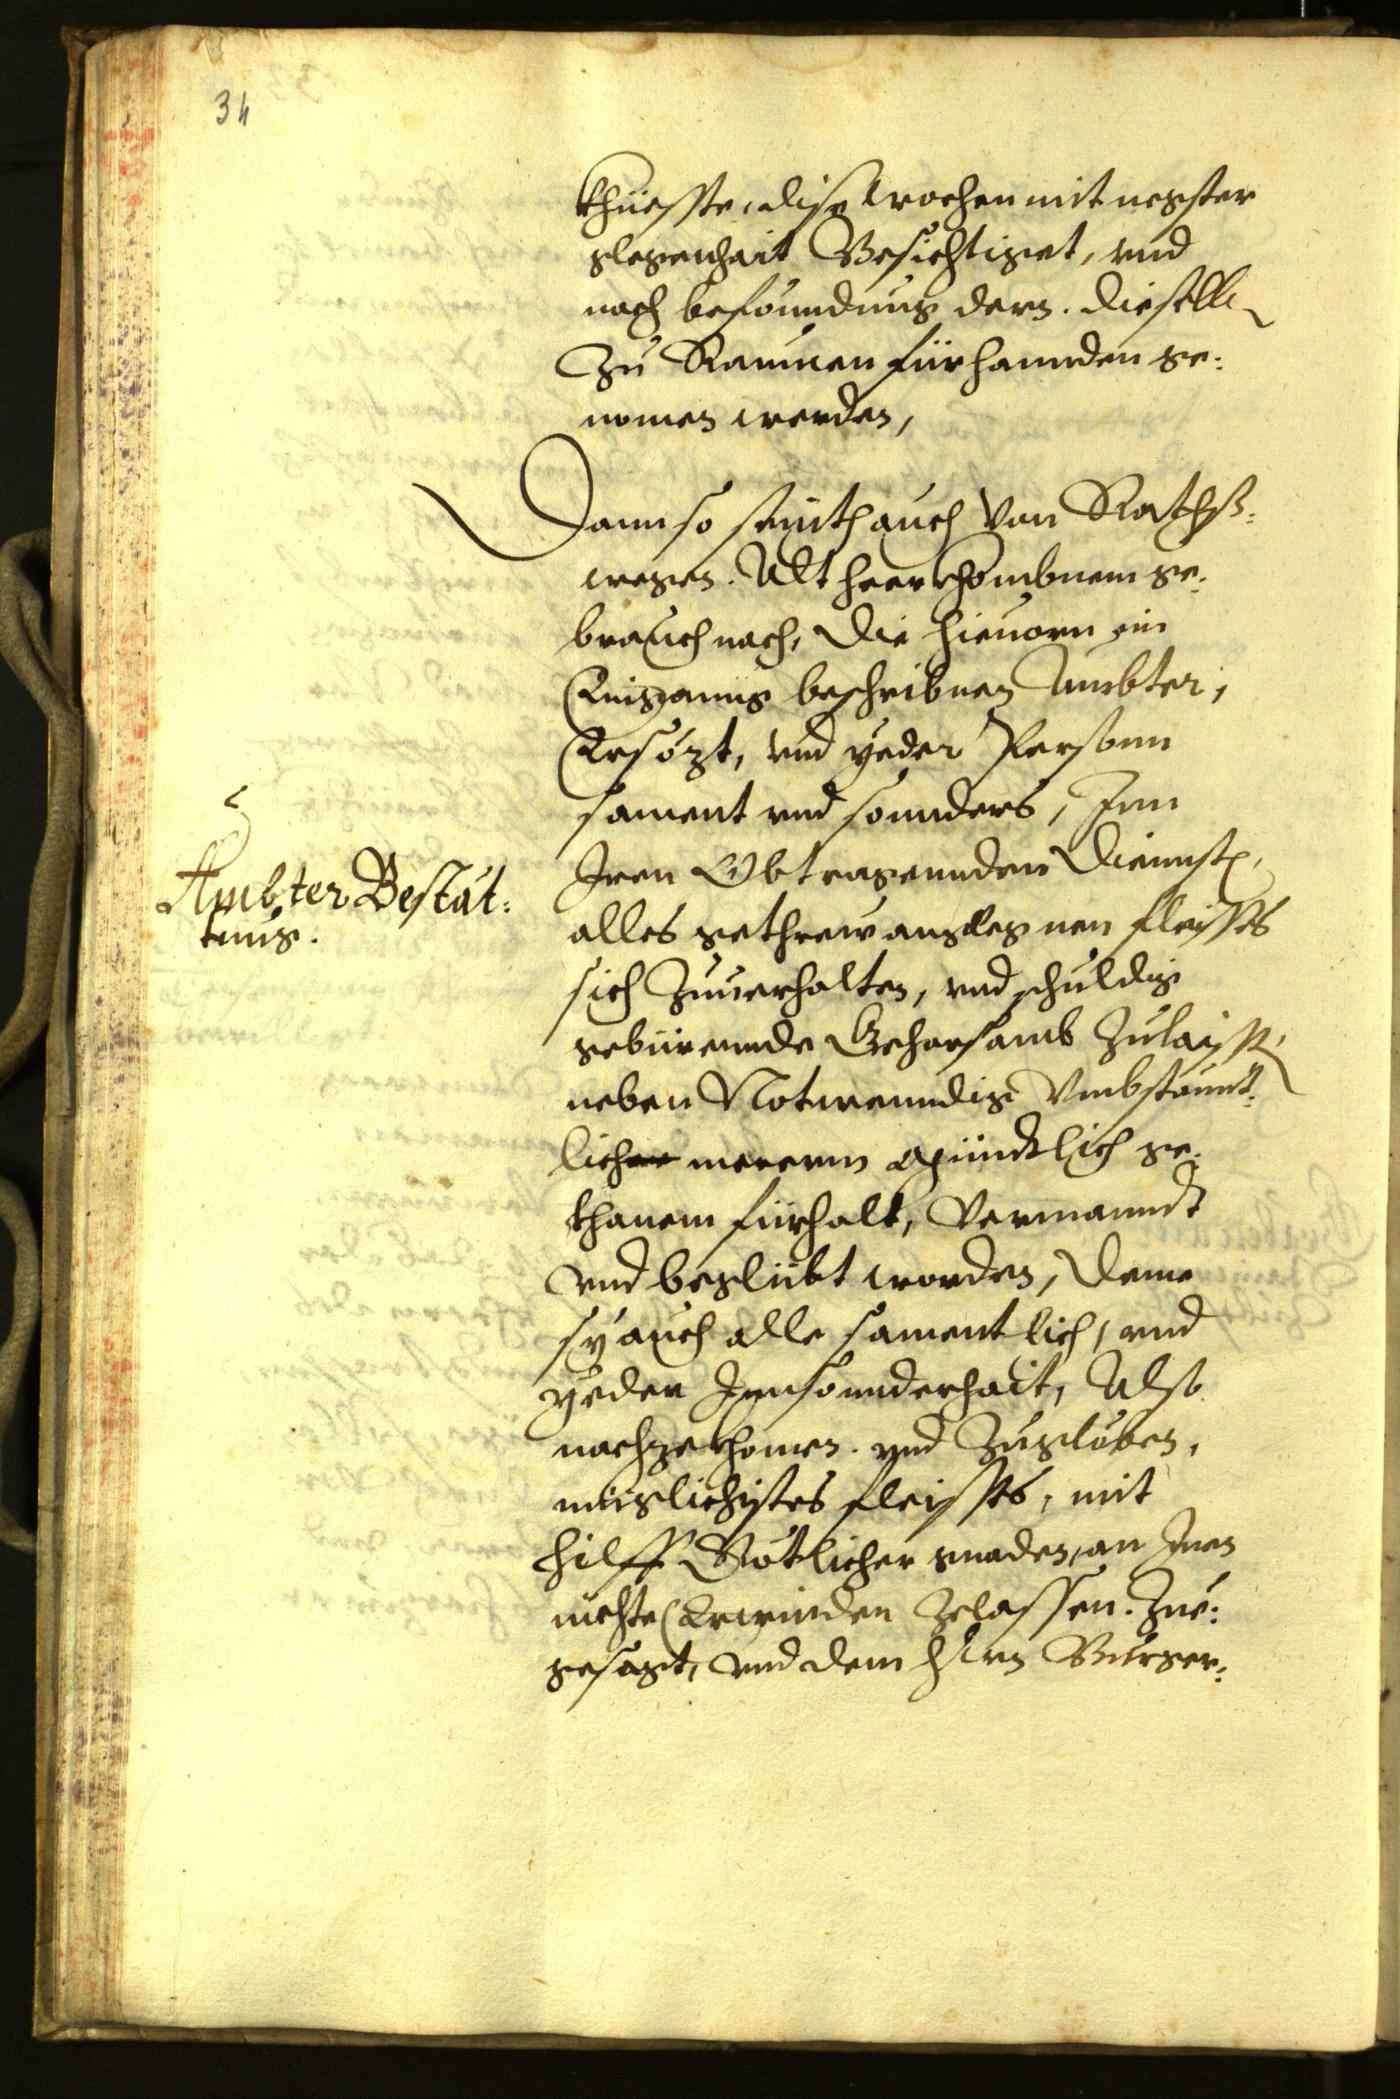 34
dise wochen mit negster
glegenhait Besichtiget, vnd
nach befonndung dern. dieselb
Zu Raumen fürhannden ge:
nomen werden,
Dann so seinth auch von Rathß:
wegen. Alt heerkhombnem ge:
brauch nach, die hieuorn im
Einganng beschribnen Ambter,
Ersözt, vnd yeder Persohn
sament vnd sonnders, Inn
Iren Obtragennden Diennsth,
alles gethrew angelegnen fleisses
sich Zuuerhalten, vnd schuldig
gebürennde Gehorsamb Zulaisst,
neben Notwenndig Vmbstannt:
licher mererm Mündtlich ge:
thanem fürhalt, Vermanndt
vnd beglübt worden, deme
sy auch alle samentlich, vnd
yeder Innsonnderhait, Also
nachzekhomen. vnd Zugeloben,
müglichistes fleisses, mit
hilff Götlicher gnaden, an Inen
nichte Erwinden Zelassen. Zue:
gesagt, vnd dem Hern Burger:
Ambter Bestät:
tung.